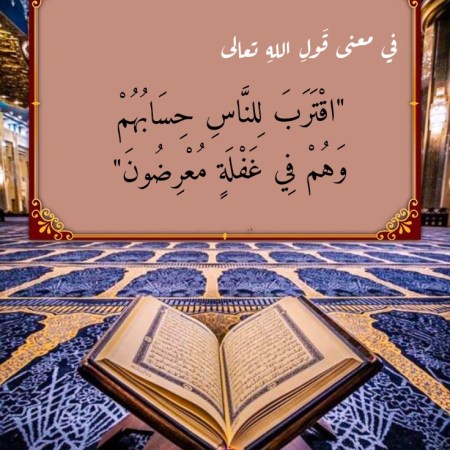 في معنى قَولِ اللهِ تعالى
"اقْتَرَبَ لِلنَّاسِ حِسَابُهُمْ
وَهُمْ فِي غَفْلَةٍ مُعْرِضُونَ"